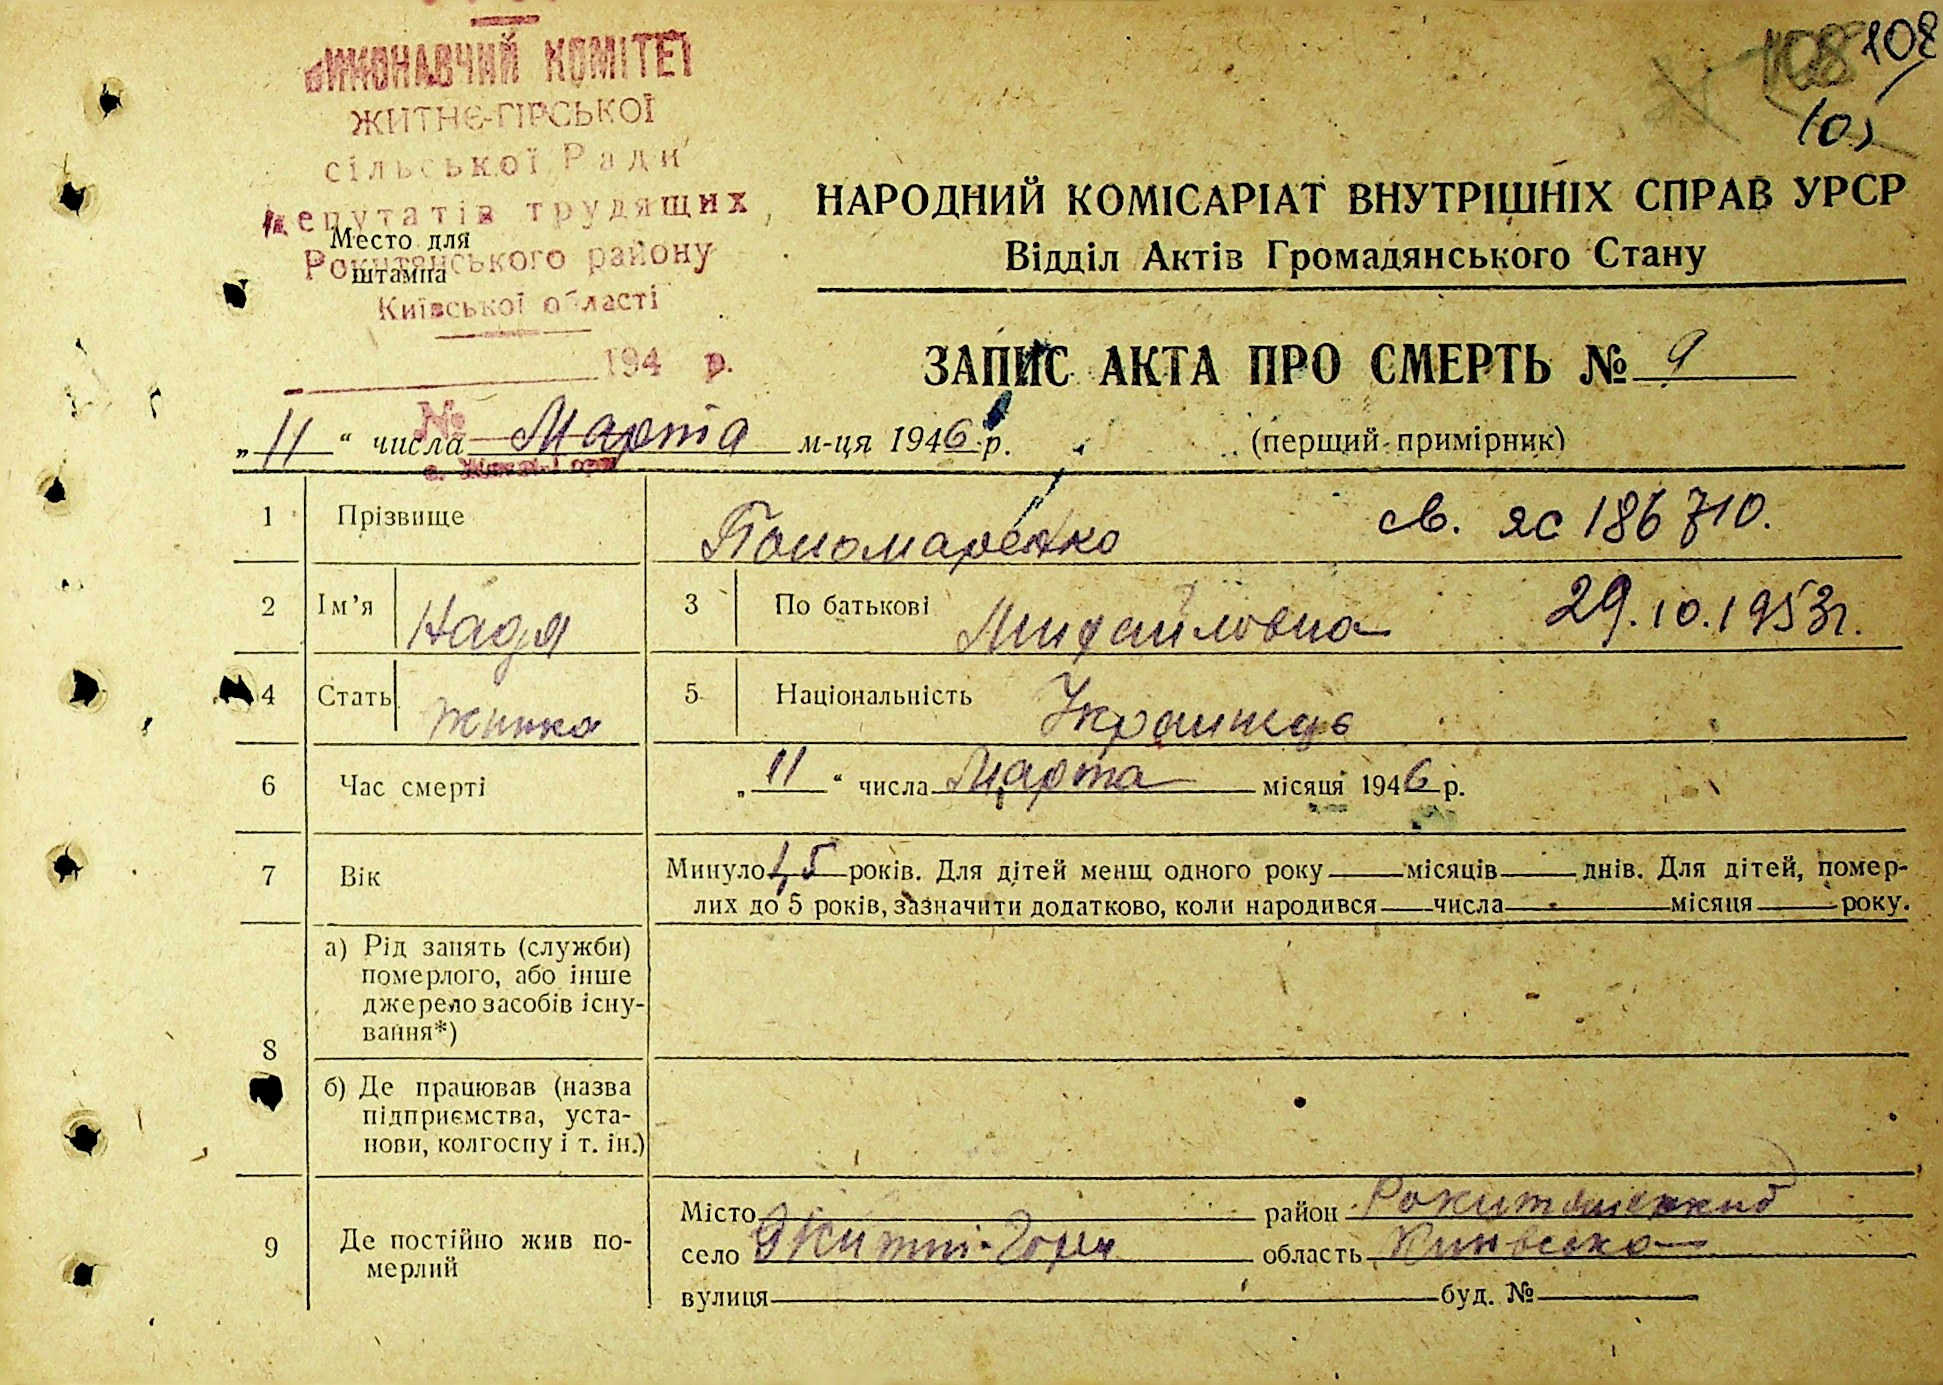 ВИКОНАВЧИЙ КОМІТЕТ
ЖИТНЄ-ГІРСЬКОЇ
сільської Ради
депутатів трудящих
Рокитянського району
Київської області
194 р.
№
с. Житні-Гори
Место для
штампа
108 108
НАРОДНИЙ КОМІСАРІАТ ВНУТРІШНІХ СПРАВ УРСР
Відділ Актів Громадянського Стану
ЗАПИС АКТА ПРО СМЕРТЬ № 9
„11“ числа Марта м-ця 1946 р. (перщий примірник)
1 Прізвище Пономаренко св. яс 186710.
2 Ім’я Надя 3 По батькові Михайловна 29.10.1953г.
4 Стать Жинка 5 Національність Украинець
6 Час смерті „11“ числа Марта місяця 1946 р.
7 Вік Минуло 45 років. Для дітей менщ одного року місяців днів. Для дітей, помер-
лих до 5 років, зазначити додатково, коли народився числа місяця року.
8 а) Рід занять (служби)
померлого, або інше
джерело засобів існу-
вання*)
б) Де працював (назва
підприємства, уста-
нови, колгоспу і т. ін.)
9 Де постійно жив по-
мерлий
Місто район Рокитянский
село Житні-Гори область Киивська
вулиця буд. №